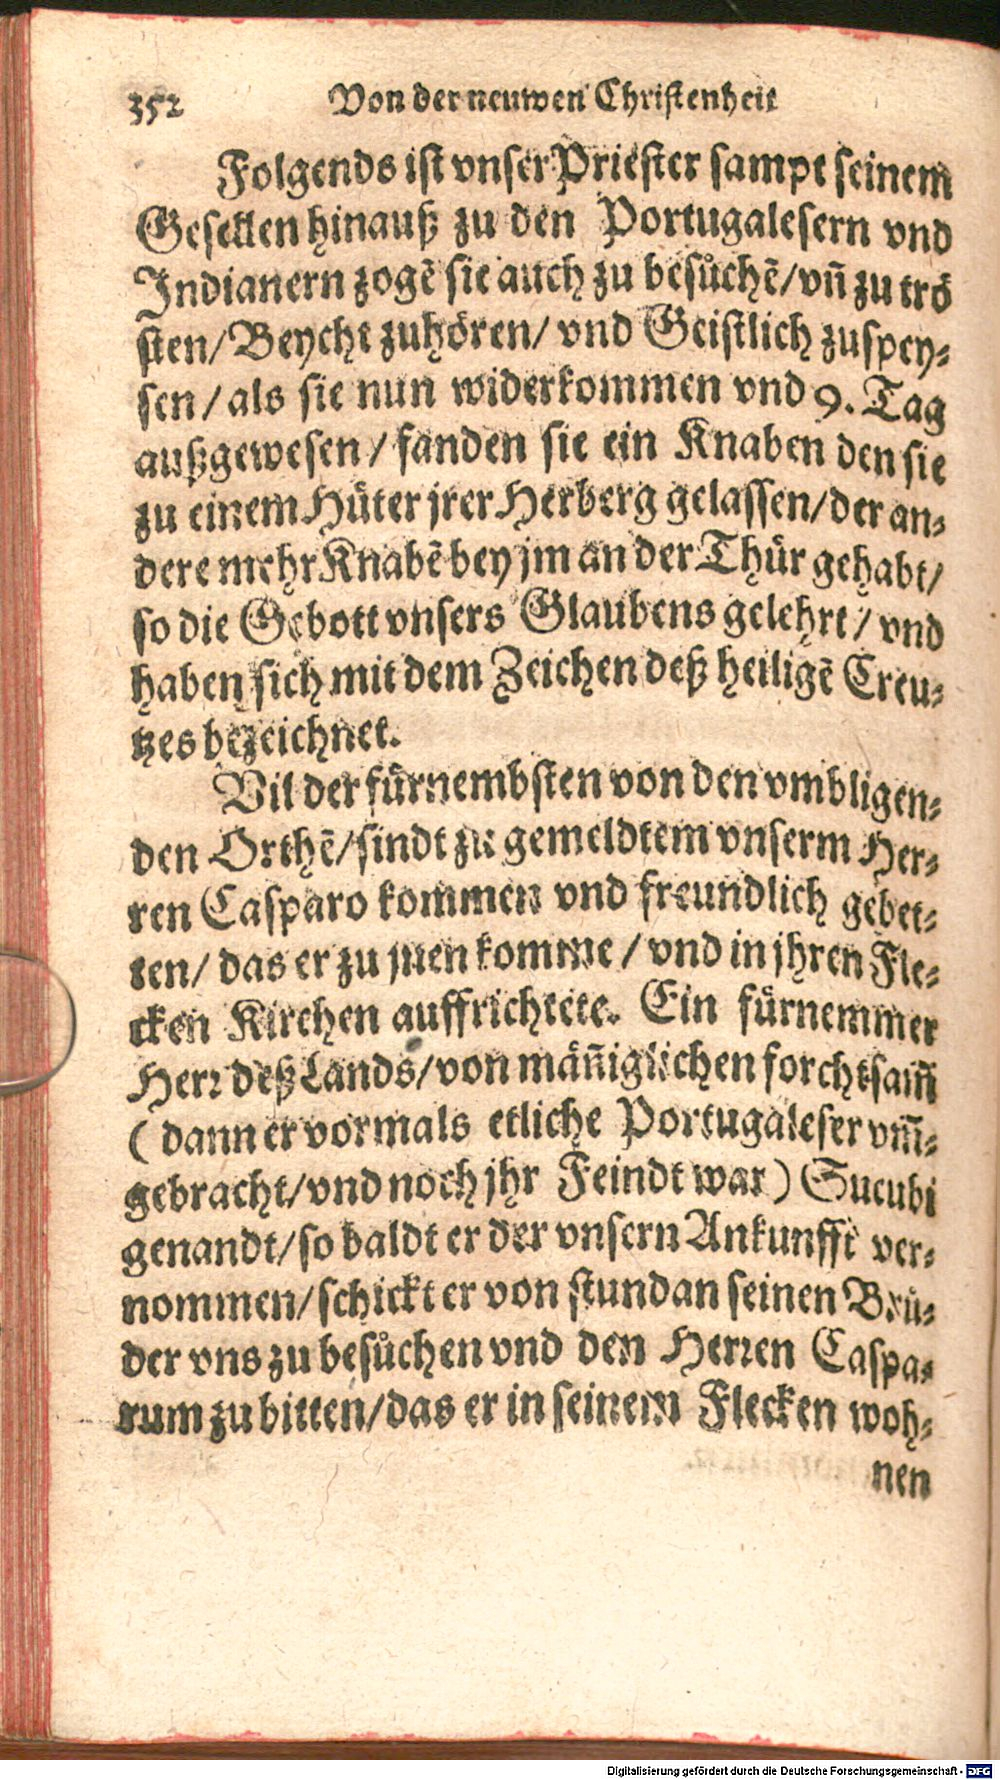 352 Von der neuwen Christenheit
Folgends ist vnser Priester sampt seinem
Gesellen hinauß zu den Portugalesern vnd
Indianern zogẽ sie auch zu besůchẽ/vñ zu trö
sten/Beycht zuhören/ vnd Geistlich zuspey-
sen/als sie nun widerkommen vnd 9. Tag
außgewesen/fanden sie ein Knaben den sie
zu einem Hüter jrer Herberg gelassen/der an-
dere mehr Knabẽ bey jm an der Thür gehabt/
so die Gebott vnsers Glaubens gelehrt/ vnd
haben sich mit dem Zeichen deß heiligẽ Creu-
tzes bezeichnet.
Vil der fürnembsten von den vmbligen-
den Orthẽ/sindt zu gemeldtem vnserm Her-
ren Casparo kommen vnd freundlich gebet-
ten/ das er zu jnen komme/vnd in jhren Fle-
cken Kirchen auffrichtete. Ein fürnemmer
Herr deß Lands/von mäñiglichen forchtsam̃
( dann er vormals etliche Portugaleser vm̃-
gebracht/vnd noch jhr Feindt war) Sucubi
genandt/so baldt er der vnsern Ankunfft ver-
nommen/schickt er von stund an seinen Brů-
der vns zu besůchen vnd den Herren Caspa-
rum zu bitten/das er in seinem Flecken woh-
nen
Digitalisierung gefördert durch die Deutsche Forschungsgemeinschaft - DFG